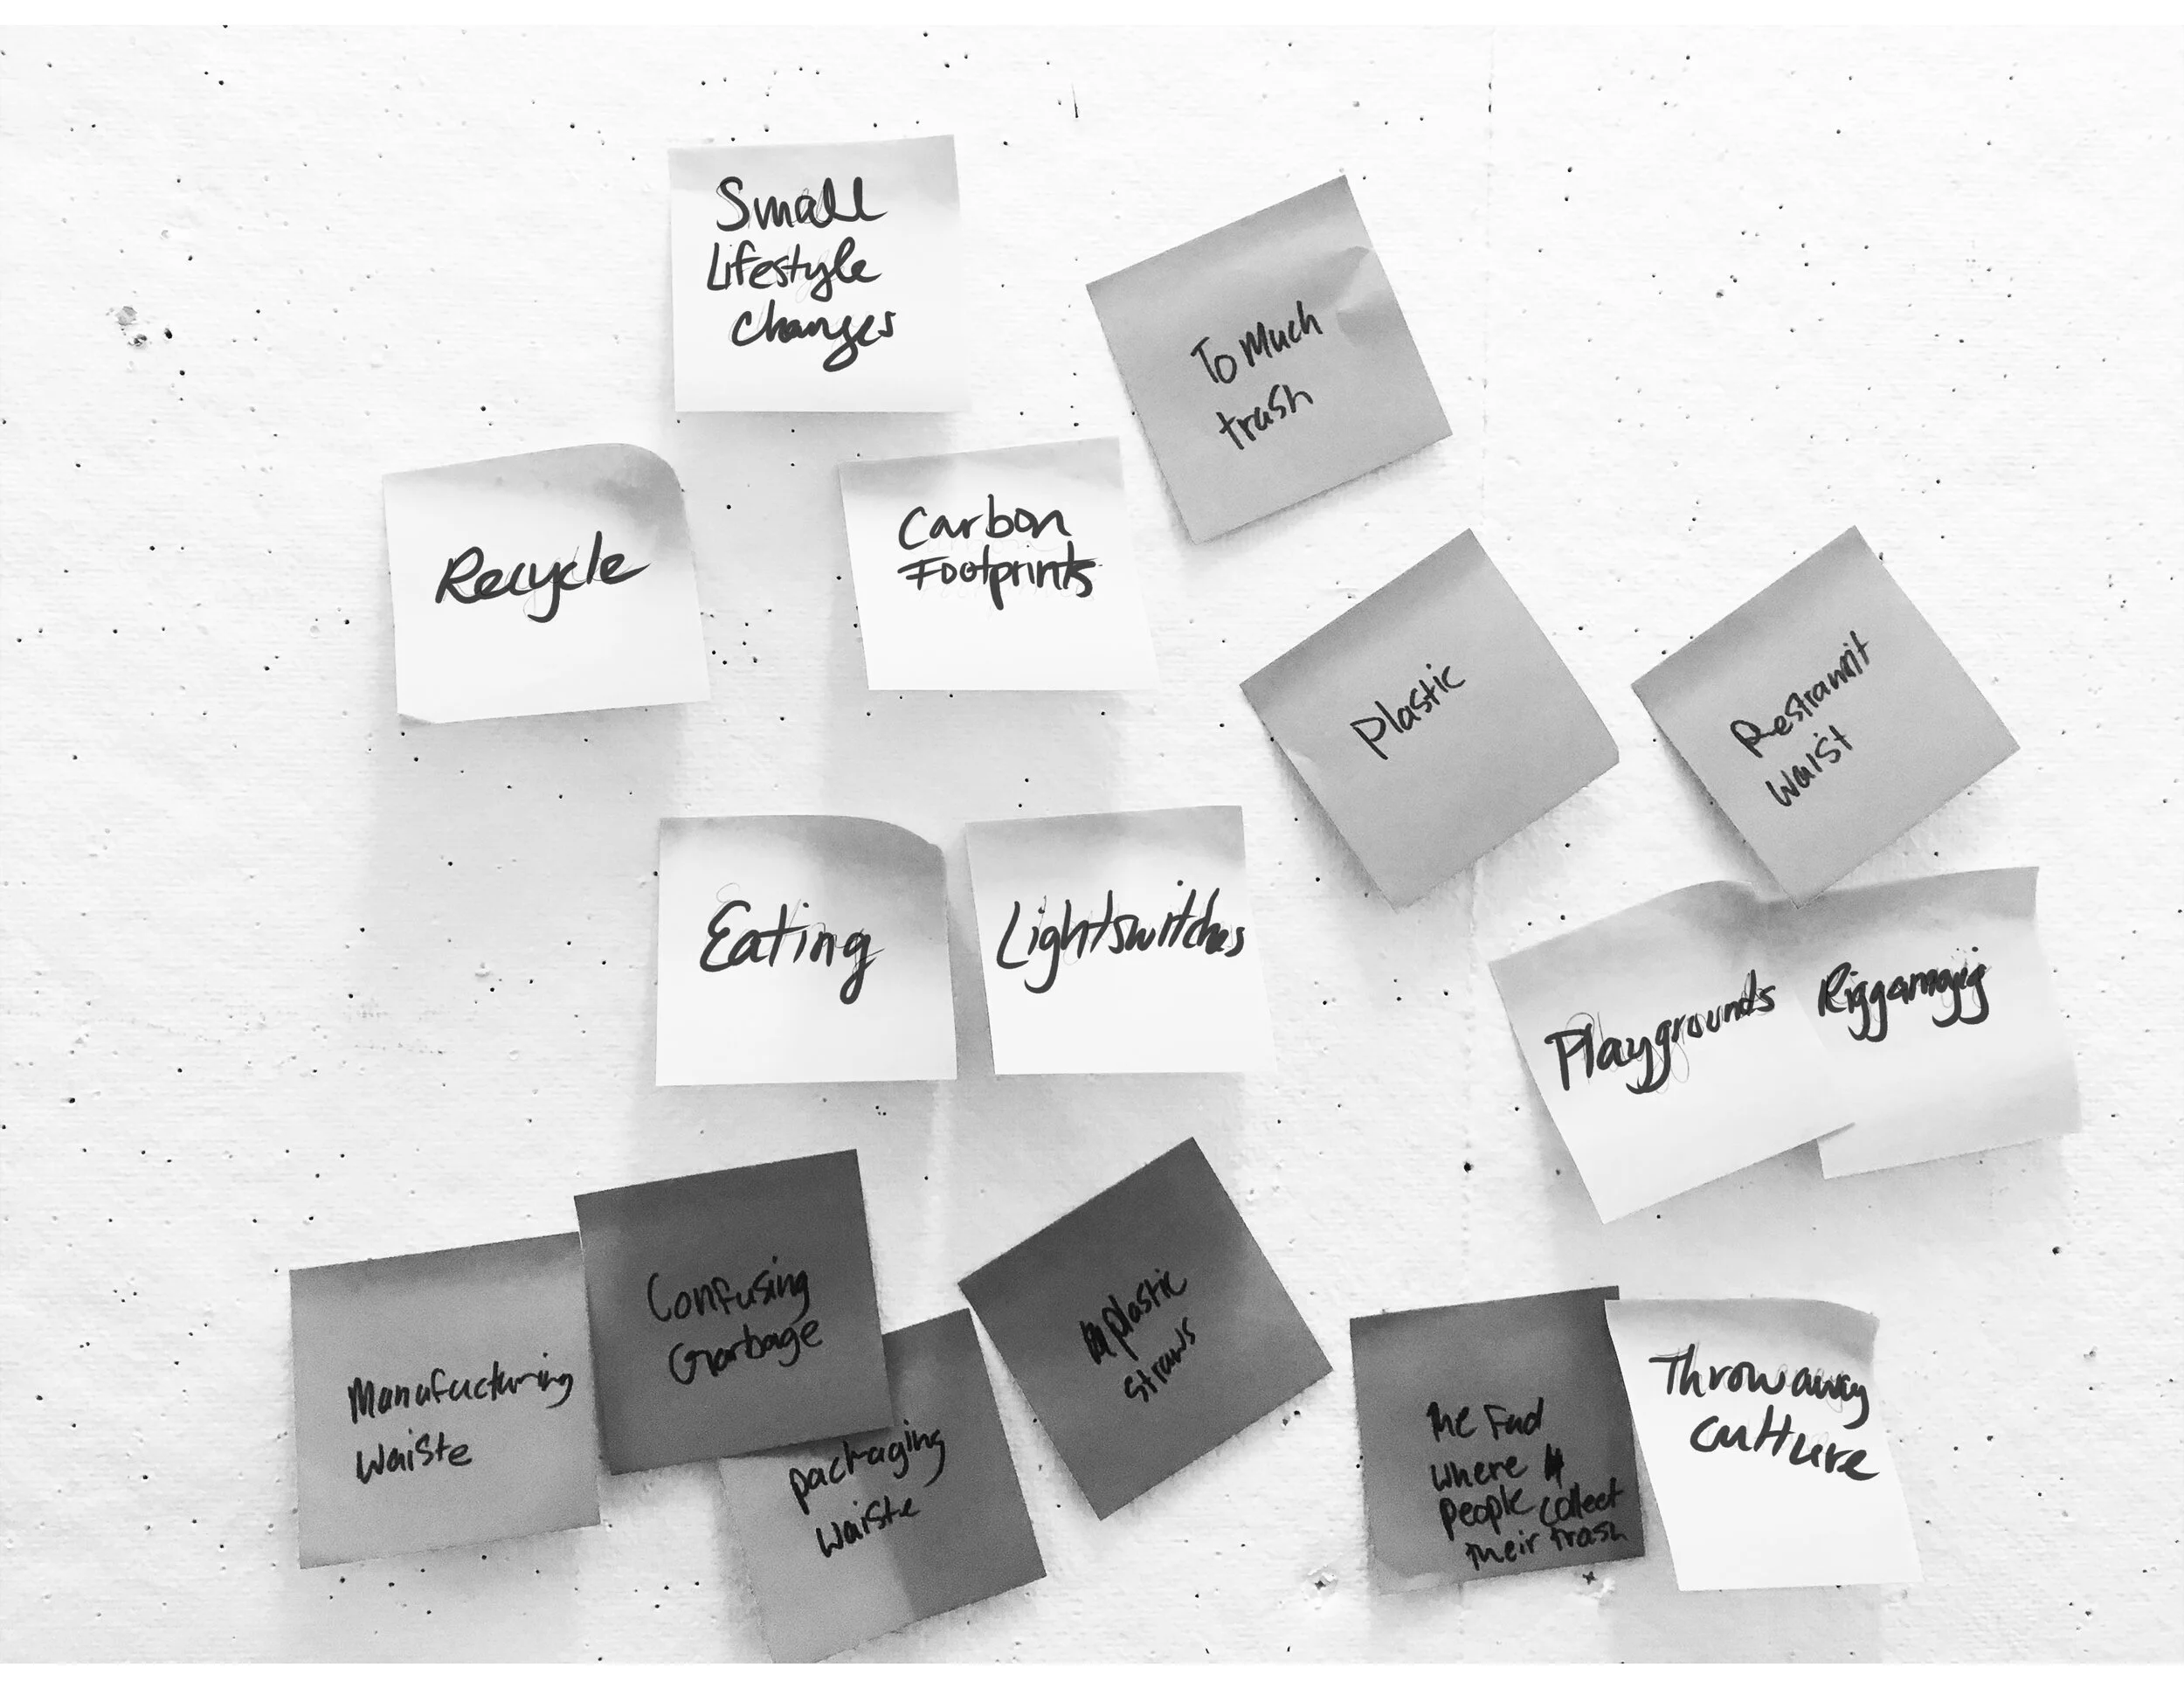 Small
Lifestyle
changes
To Much
trash
Recycle
Carbon
Footprints
Plastic
Restraunt
waist
Eating
Lightswitches
Playgrounds
Riggamajig
Confusing
Garbage
Manufacturing
Waiste
packaging
waiste
plastic
straws
The Fad
where
people collect
their trash
Throwaway
culture